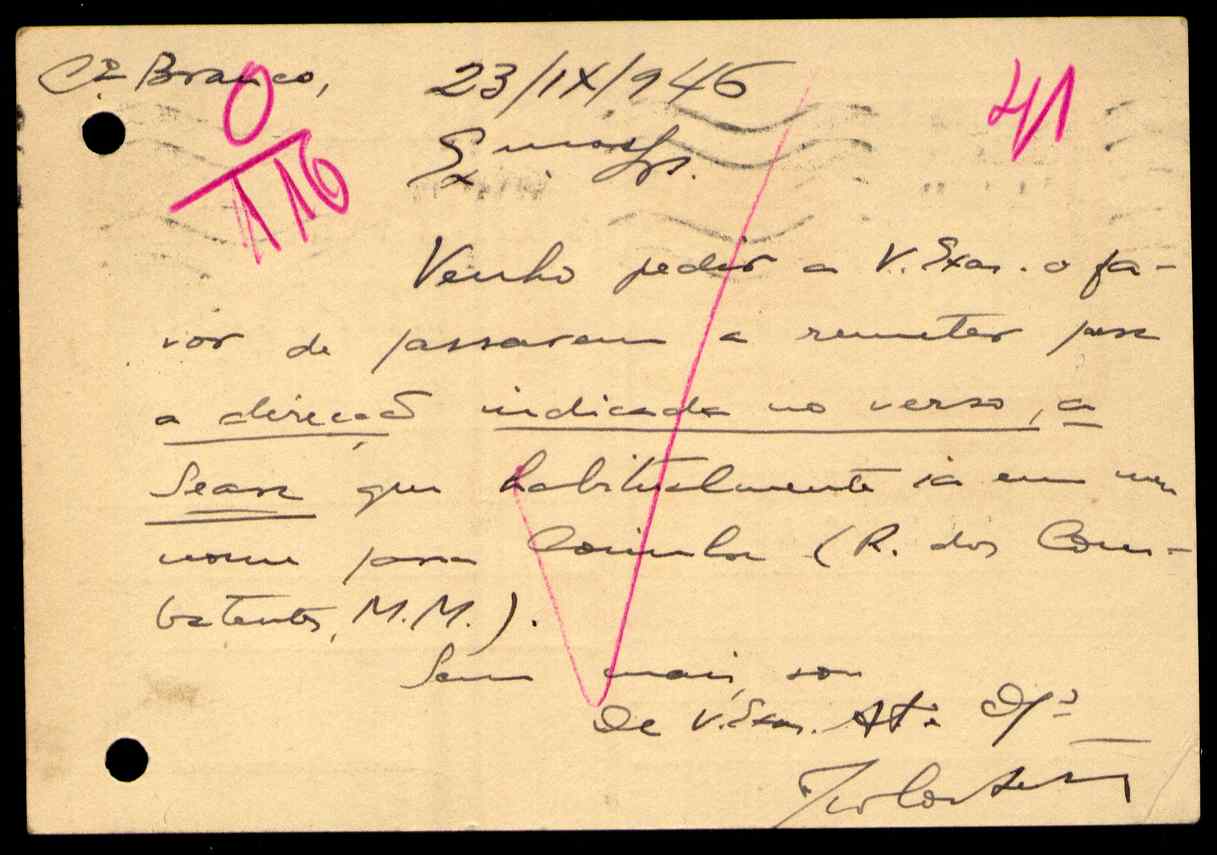 C.º Branco, 23/IX/946
0
116
41
Exmos Srs.
Venho pedir a V. Exas. o fa-
vor de passarem a remeter para
a direcção indicada no verso, a
Seara que habitualmente ia em meu
nome para Coimbra (R. dos Com-
batentes, M.M.).
Sem mais, sou
De V. Exas. At.